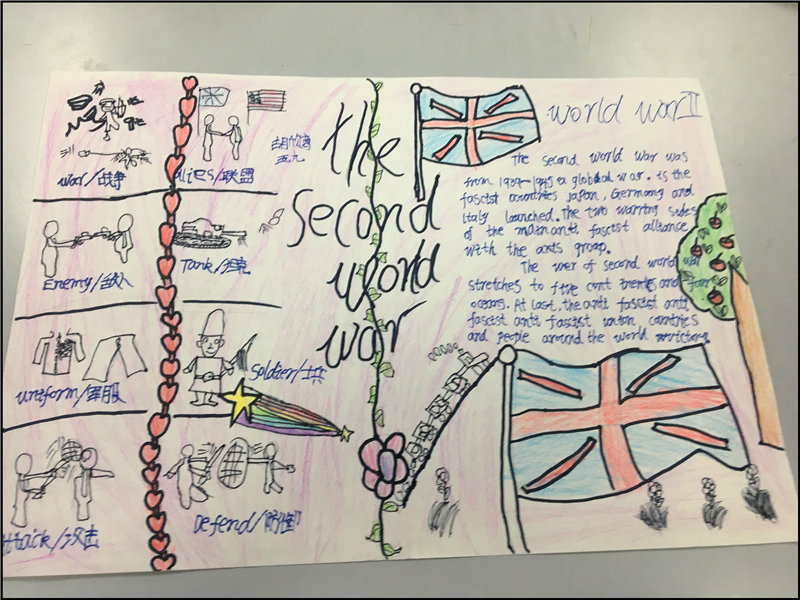 war/战争
Allies/联盟
Enemy/敌人
Tank/坦克
uniform/军服
Soldier/士兵
Attack/攻击
Defend/防御
the
second
world
war
world war II
The second world war was
from 1939-1945 a global war. is the
fascist countries Japan, Germany and
Italy launched. The two warring sides
of the main anti fascist alliance
with the axis group.
The wer of second world war
stretches to five cont and four
oceans. At last, the anti fascist anti
fascist anti fascist union countries
and people around the world